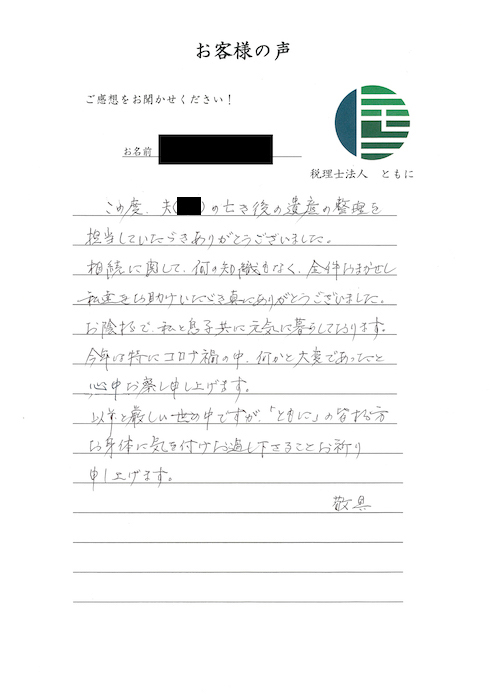 お客様の声
ご感想をお聞かせください！
お名前
税理士法人　ともに
この度、夫(　)の亡き後の遺産の整理を
担当していただきありがとうございました。
相続に関して、何の知識もなく、全件おまかせし
私達をお助けいただき真にありがとうございました。
お陰様で、私と息子共に元気に暮らしております。
今年は特にコロナ禍の中、何かと大変であったと
心中お察し申し上げます。
以前と厳しい世の中ですが、「ともに」の皆様方
お身体に気を付けお過し下さることお祈り
申し上げます。
敬具